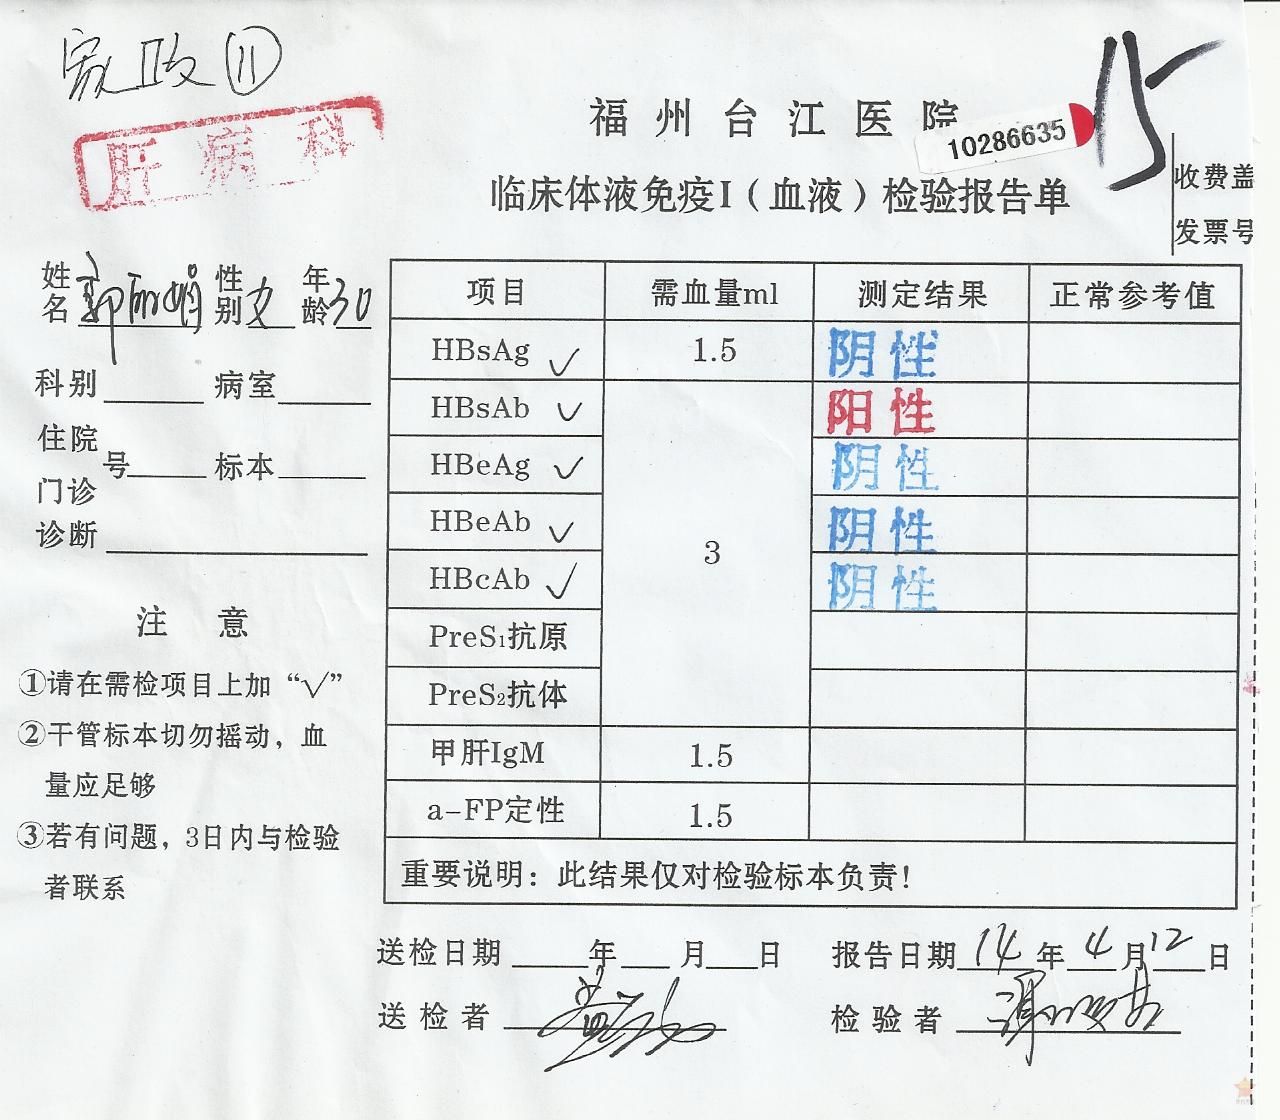 家政⑪
肝病科
福州台江医院
10286635
15
临床体液免疫I（血液）检验报告单
收费盖
发票号
姓名 郭丽娟 性别 女 年龄 30
科别 病室
住院
号 标本
门诊
诊断
注 意
①请在需检项目上加“√”
②干管标本切勿摇动，血
量应足够
③若有问题，3日内与检验
者联系
项目 需血量ml 测定结果 正常参考值
HBsAg √ 1.5 阴性
HBsAb √ 阳性
HBeAg √ 阴性
HBeAb √ 3 阴性
HBcAb √ 阴性
PreS₁抗原
PreS₂抗体
甲肝IgM 1.5
a-FP定性 1.5
重要说明：此结果仅对检验标本负责！
送检日期 年 月 日 报告日期 14 年 4 月 12 日
送检者 检验者